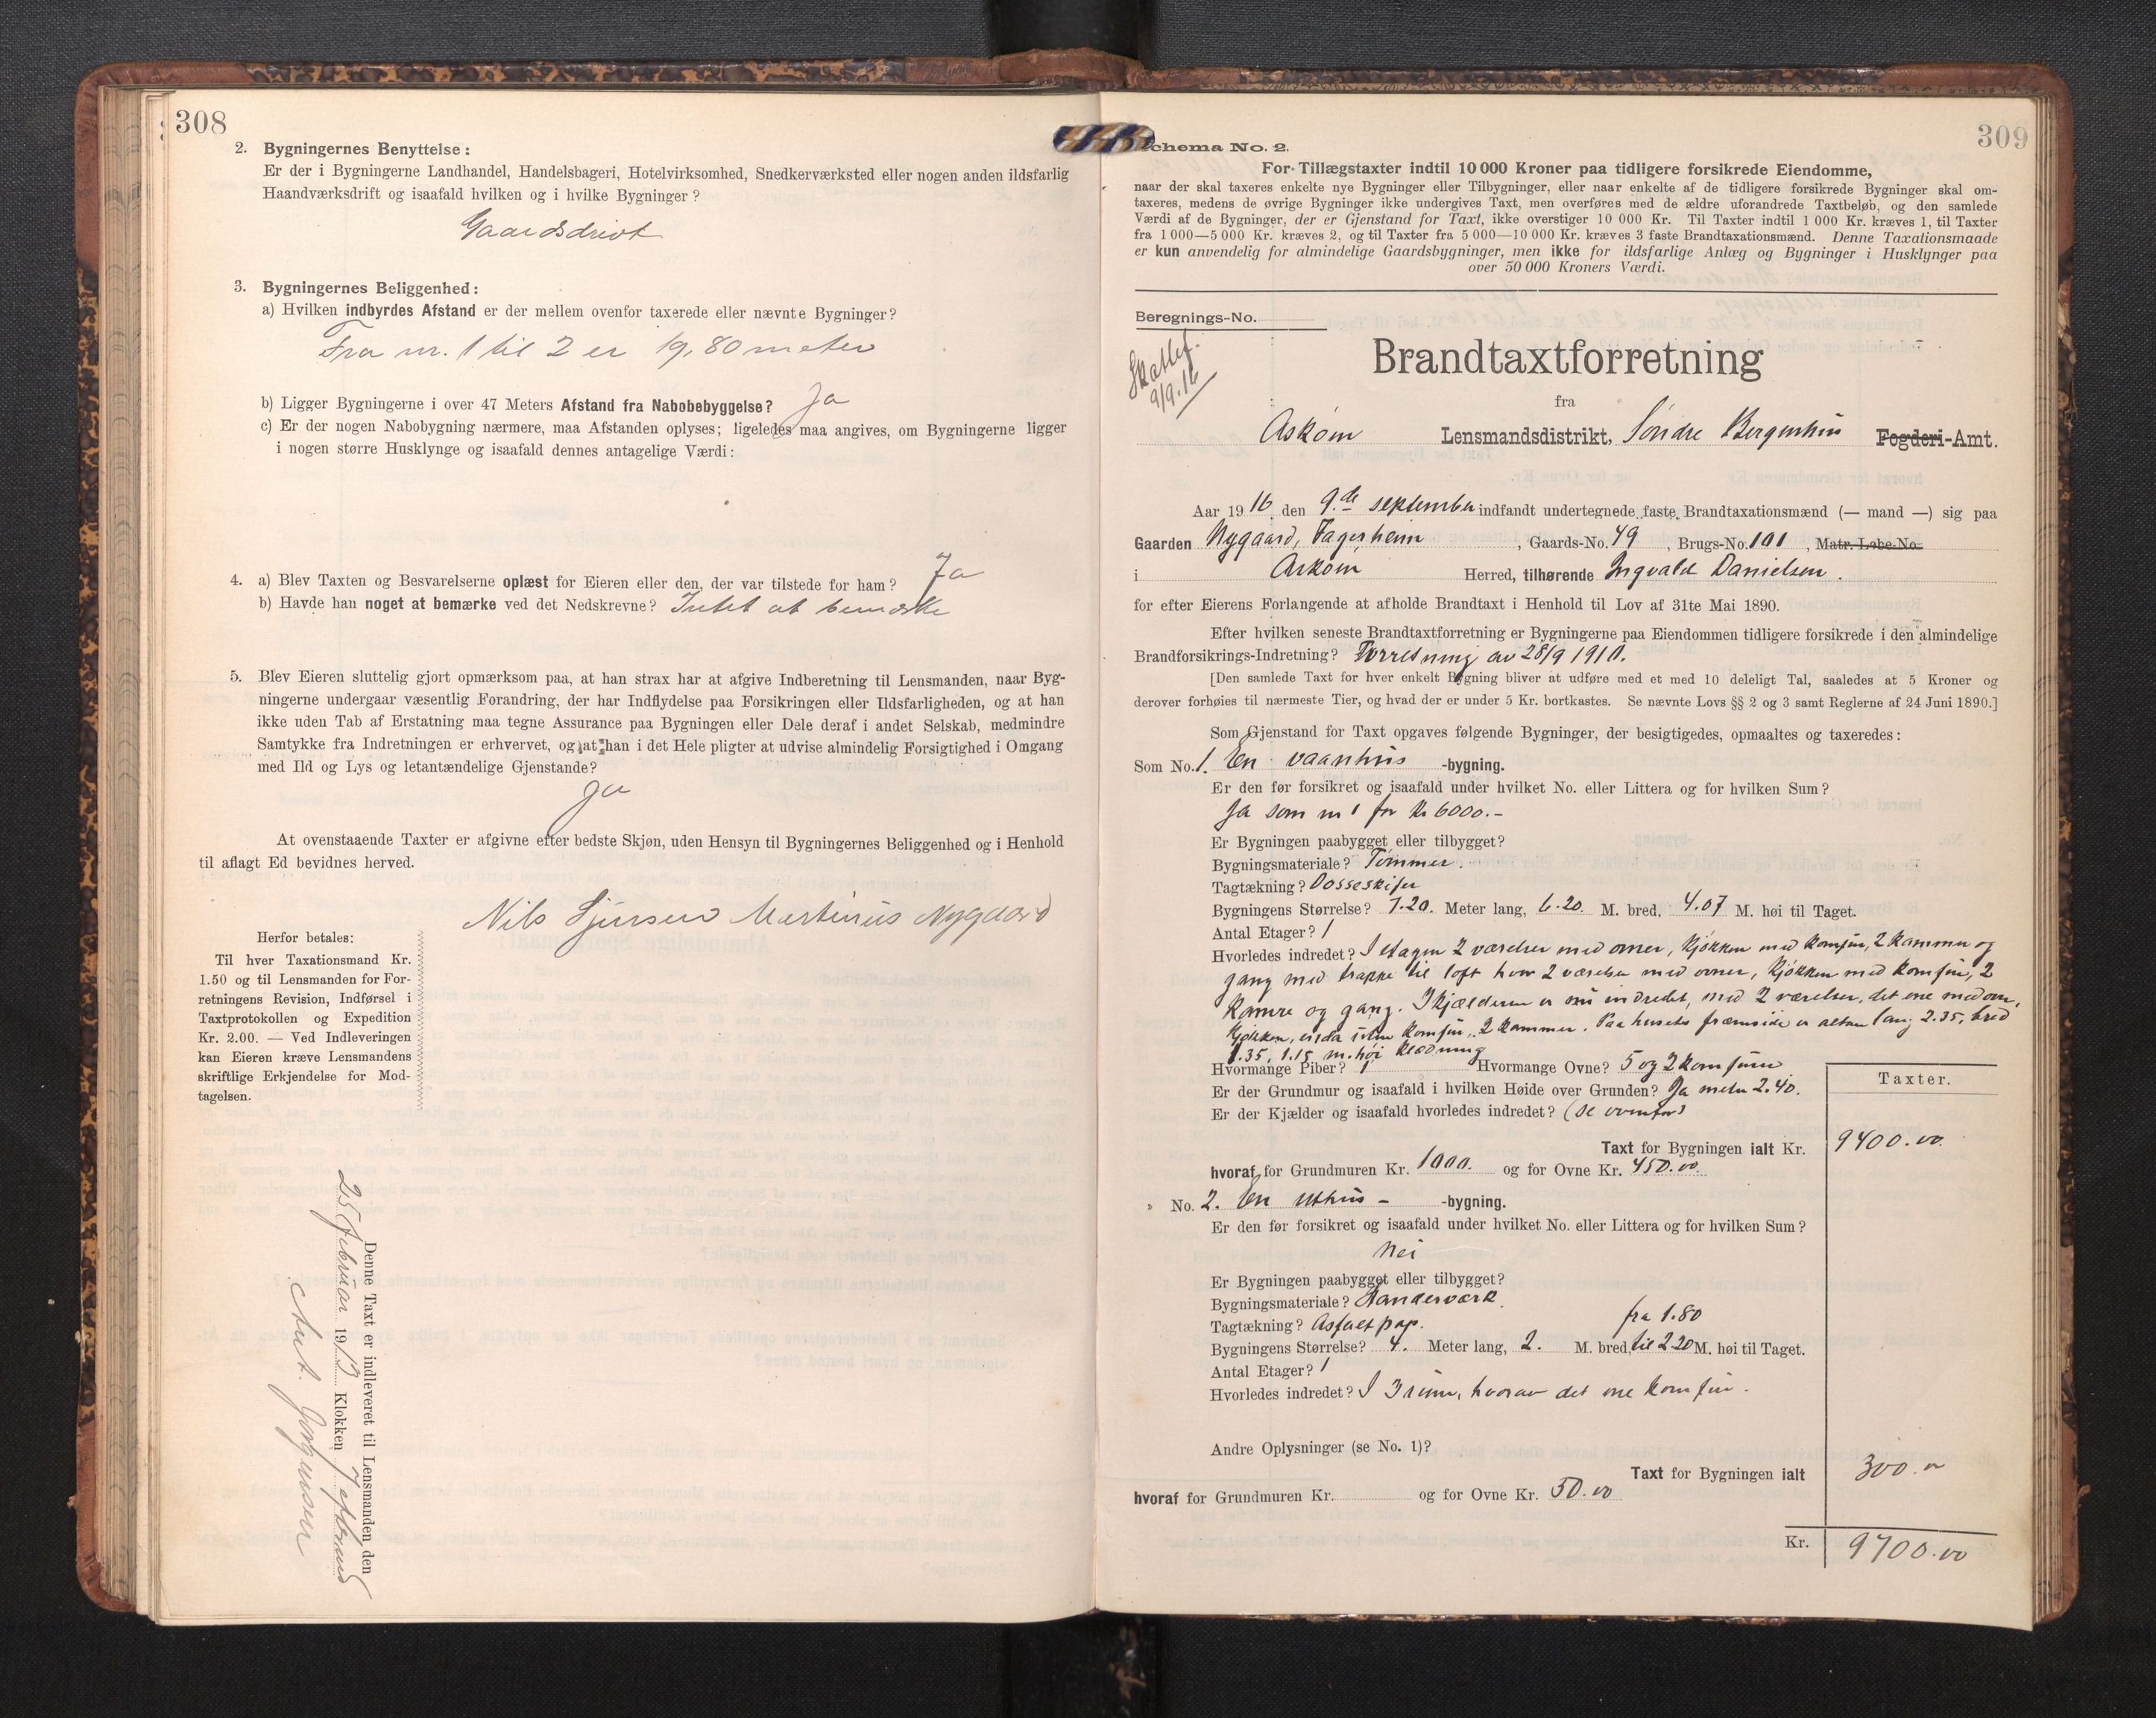 308
2. Bygningernes Benyttelse:
Er der i Bygningerne Landhandel, Handelsbageri, Hotelvirksomhed, Snedkerværksted eller nogen anden ildsfarlig
Haandværksdrift og isaafald hvilken og i hvilke Bygninger?
Gaardsdrivt
3. Bygningernes Beliggenhed:
a) Hvilken indbyrdes Afstand er der mellem ovenfor taxerede eller nævnte Bygninger?
Fra nr. 1 til 2 er 19,80 meter
b) Ligger Bygningerne i over 47 Meters Afstand fra Nabobebyggelse? Ja
c) Er der nogen Nabobygning nærmere, maa Afstanden oplyses; ligeledes maa angives, om Bygningerne ligger
i nogen større Husklynge og isaafald dennes antagelige Værdi:
4. a) Blev Taxten og Besvarelserne oplæst for Eieren eller den, der var tilstede for ham? Ja
b) Havde han noget at bemærke ved det Nedskrevne? Intet at bemærke
5. Blev Eieren sluttelig gjort opmærksom paa, at han strax har at afgive Indberetning til Lensmanden, naar Byg-
ningerne undergaar væsentlig Forandring, der har Indflydelse paa Forsikringen eller Ildsfarligheden, og at han
ikke uden Tab af Erstatning maa tegne Assurance paa Bygningen eller Dele deraf i andet Selskab, medmindre
Samtykke fra Indretningen er erhvervet, og at han i det Hele pligter at udvise almindelig Forsigtighed i Omgang
med Ild og Lys og letantændelige Gjenstande?
Ja
At ovenstaaende Taxter er afgivne efter bedste Skjøn, uden Hensyn til Bygningernes Beliggenhed og i Henhold
til aflagt Ed bevidnes herved.
Nils Martinus Nygaard
Herfor betales:
Til hver Taxationsmand Kr.
1.50 og til Lensmanden for For-
retningens Revision, Indførsel i
Taxtprotokollen og Expedition
Kr. 2.00. — Ved Indleveringen
kan Eieren kræve Lensmandens
skriftlige Erkjendelse for Mod-
tagelsen.
Denne Taxt er indleveret til Lensmanden den
25 februar 1913 Klokken 7 eftermid
Ant. Jørgensen
309
Schema No. 2.
For Tillægstaxter indtil 10 000 Kroner paa tidligere forsikrede Eiendomme,
naar der skal taxeres enkelte nye Bygninger eller Tilbygninger, eller naar enkelte af de tidligere forsikrede Bygninger skal om-
taxeres, medens de øvrige Bygninger ikke undergives Taxt, men overføres med de ældre uforandrede Taxtbeløb, og den samlede
Værdi af de Bygninger, der er Gjenstand for Taxt, ikke overstiger 10 000 Kr. Til Taxter indtil 1 000 Kr. kræves 1, til Taxter
fra 1 000—5 000 Kr. kræves 2, og til Taxter fra 5 000—10 000 Kr. kræves 3 faste Brandtaxationsmænd. Denne Taxationsmaade
er kun anvendelig for almindelige Gaardsbygninger, men ikke for ildsfarlige Anlæg og Bygninger i Husklynger paa
over 50 000 Kroners Værdi.
Beregnings-No.
Skattef.
9/9.16
Brandtaxtforretning
fra
Askøin Lensmandsdistrikt, Søndre Bergenhus Fogderi-Amt.
Aar 1916 den 9.de september indfandt undertegnede faste Brandtaxationsmænd (— mand —) sig paa
Gaarden Nygaard, Fagerheim, Gaards-No. 49, Brugs-No. 101, Matr. Løbe-No.
i Askøin Herred, tilhørende Ingvald Danielsen.
for efter Eierens Forlangende at afholde Brandtaxt i Henhold til Lov af 31te Mai 1890.
Efter hvilken seneste Brandtaxtforretning er Bygningerne paa Eiendommen tidligere forsikrede i den almindelige
Brandforsikrings-Indretning? Forretning av 28/9 1910.
[Den samlede Taxt for hver enkelt Bygning bliver at udføre med et med 10 deleligt Tal, saaledes at 5 Kroner og
derover forhøies til nærmeste Tier, og hvad der er under 5 Kr. bortkastes. Se nævnte Lovs §§ 2 og 3 samt Reglerne af 24 Juni 1890.]
Som Gjenstand for Taxt opgaves følgende Bygninger, der besigtigedes, opmaaltes og taxeredes:
Som No. 1. En vaanhus -bygning.
Er den før forsikret og isaafald under hvilket No. eller Littera og for hvilken Sum?
Ja som nr 1 for kr 6000.-
Er Bygningen paabygget eller tilbygget?
Bygningsmateriale? Tømmer.
Tagtækning? Vosseskifer
Bygningens Størrelse? 7.20. Meter lang, 6.20 M. bred, 4.07 M. høi til Taget.
Antal Etager? 1
Hvorledes indredet? I etagen 2 værelser med ovner, kjøkken med komfur, 2 kammer og
gang med trappe til loft hvor 2 værelser med ovner, kjøkken med komfur, 2
kamre og gang. I kjælderen er nu indredet, med 2 værelser, det ene med ovn,
kjøkken, enda uden komfur, 2 kammer. Paa husets fremside er altan lang 2.35, bred
1.35, 1.15 m. høi klædning
Hvormange Piber? 1 Hvormange Ovne? 5 og 2 komfurer
Er der Grundmur og isaafald i hvilken Høide over Grunden? Ja meter 2.40.
Er der Kjælder og isaafald hvorledes indredet? (se ovenfor)
Taxter.
Taxt for Bygningen ialt Kr. 9400.00
hvoraf for Grundmuren Kr. 1000. og for Ovne Kr. 450.00.
» No. 2. En uthus - -bygning.
Er den før forsikret og isaafald under hvilket No. eller Littera og for hvilken Sum?
Nei
Er Bygningen paabygget eller tilbygget?
Bygningsmateriale? Standerværk.
Tagtækning? Asfaltpap. fra 1.80
Bygningens Størrelse? 4. Meter lang, 2. M. bred, til 2.20 M. høi til Taget.
Antal Etager? 1
Hvorledes indredet? I 3 rum, hvorav det ene komfur.
Andre Oplysninger (se No. 1)?
Taxt for Bygningen ialt 300.00
hvoraf for Grundmuren Kr. og for Ovne Kr. 50.00
Kr. 9700.00